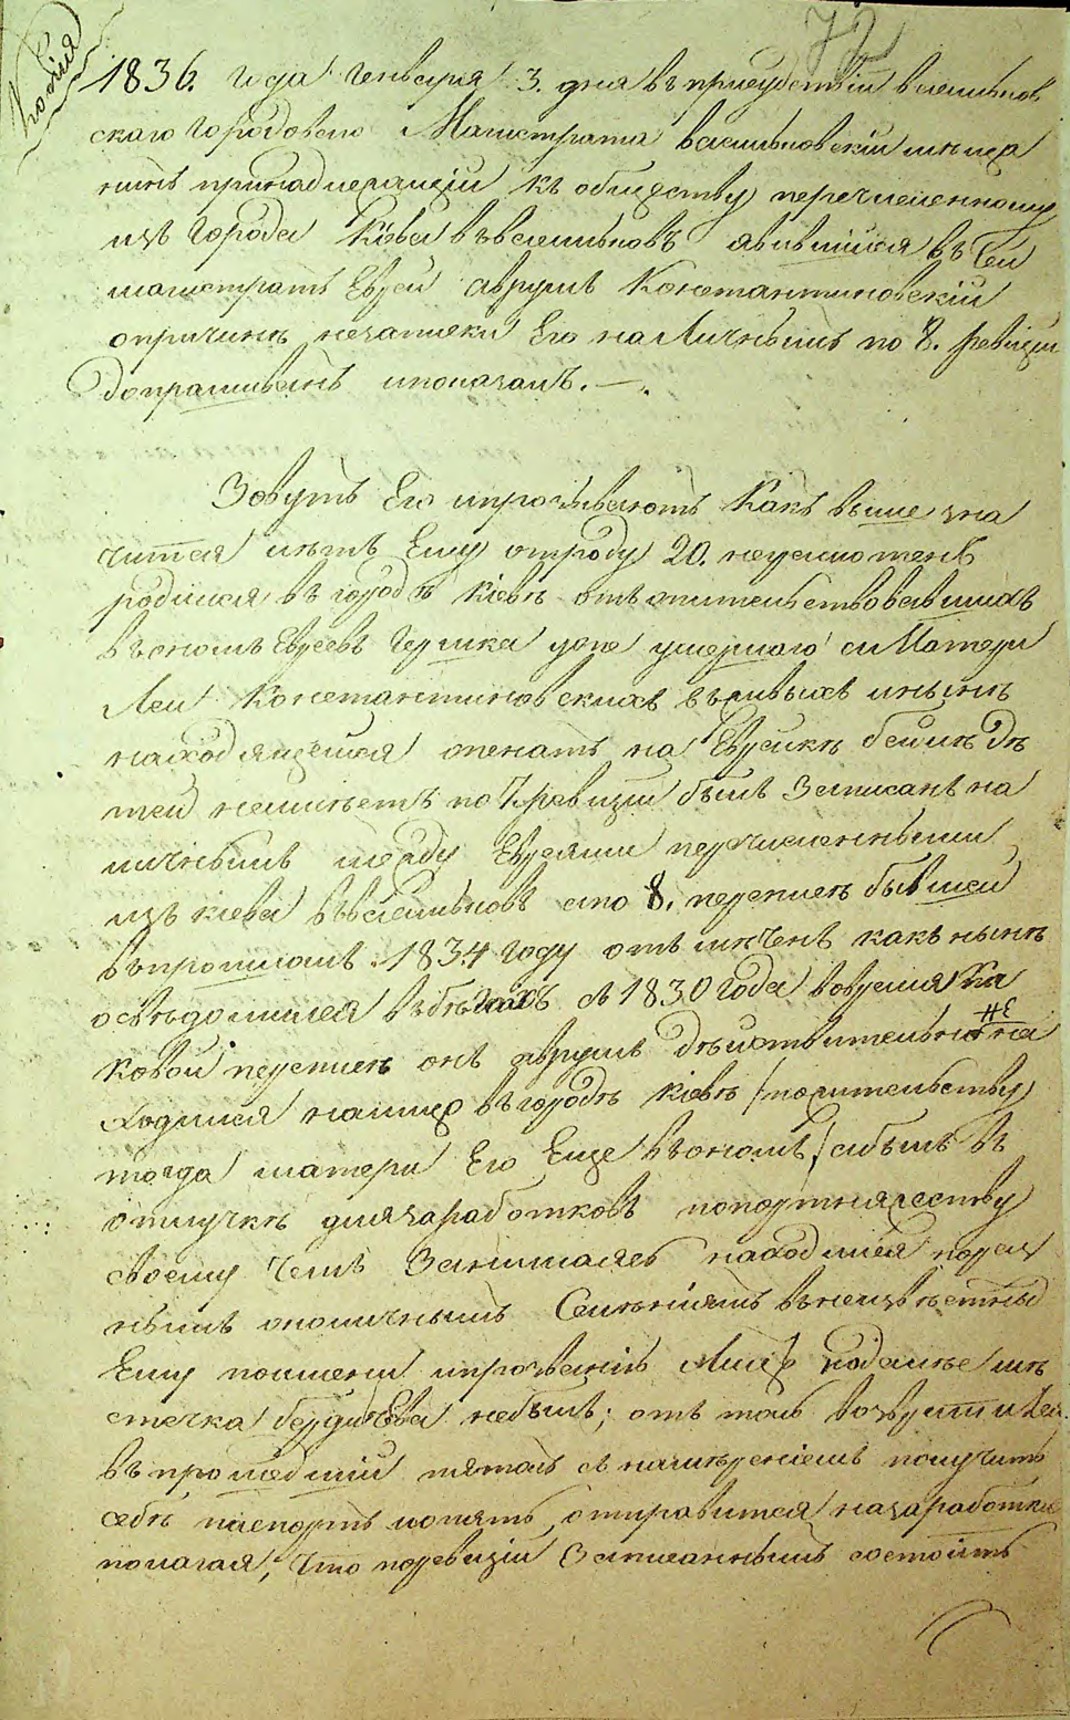 Копія
72
1836. года Генваря 3. дня въ присудствіи васильков
скаго городоваго Магистрата васильковскій мѣща
нинъ принадлежащій къ обществу перечисленному
изъ города Кіева въ васильковъ явившійся въ Сей
магистратъ Еврей аврумъ Константиновскій
опричинѣ незаписки Его на Личнымъ по 8. ревизіи
допрашиванъ ипоказалъ. —
Зовутъ Его ипрозываютъ Какъ выше зна
чится лѣтъ Ему отроду 20. неграмотенъ
родился въ городѣ Кіевѣ отъ жительствовавшихъ
въ ономъ Евреевъ Гершка уже умершаго и Матери
Леи Константиновскихъ въ живыхъ инынѣ
находящейся женатъ на Еврейкѣ бейлѣ дѣ
тей неимѣетъ по 7. ревизіи былъ Записанъ на
личнымъ между Евреями перечисленными
изъ кіева въ васильковъ апо 8. переписѣ бывшей
въ прошломъ 1834 году отмѣченъ какъ нынѣ
освѣдомился въ бѣгахъ съ 1830 Года вовремя ка
ковой переписѣ онъ аврумъ дѣйствительно не на
ходился налицо въ городѣ Кіевѣ /пожительству
тогда матери Его Еще въ ономъ/ абылъ въ
отлучкѣ для заработковъ попортняжеству
своему чемъ Занимаясь находился пораз
нымъ околичнымъ Селеніямъ въ неизвѣстных
Ему поимени ипрозванію Лицъ подалѣе мѣ
стечка бердичева небылъ; отъ толь возвратился
въ прошедшій мясоѣдъ съ намѣреніемъ получить
себѣ паспортъ иопять отправится назаработки
полагая, что поревизіи Записаннымъ состоитъ